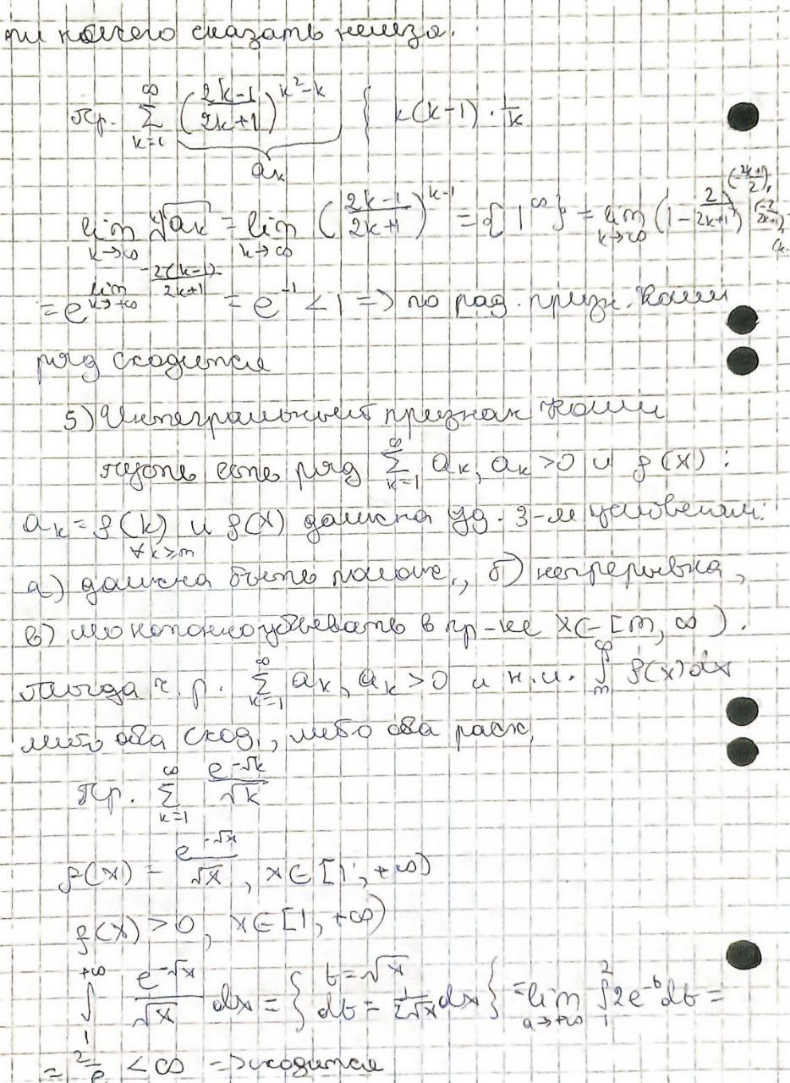 ти ничего сказать нельзя.
Пр. ∑_{k=1}^{∞} ((2k-1)/(2k+1))^{k²-k} { k(k-1) · 1/k
a_k
lim_{k→∞} ᵏ√a_k = lim_{k→∞} ((2k-1)/(2k+1))^{k-1} = {1^∞} = lim_{k→∞} (1 - 2/(2k+1))^{(-(2k+1)/2)·(-2/(2k+1))·(k-
= e^{lim_{k→+∞} -2(k-1)/(2k+1)} = e^{-1} < 1 => по рад. призн. Коши
ряд сходится
5) Интегральный признак Коши
Пусть есть ряд ∑_{k=1}^{∞} a_k, a_k > 0 и f(x) :
a_k = f(k) ∀k≥m и f(x) должна уд. 3-м условиям:
а) должна быть полож., б) непрерывна,
в) монотонно убывать в пр-ке x∈[m, ∞).
Тогда ч.р. ∑_{k=1}^{∞} a_k, a_k > 0 и н.и. ∫_{m}^{∞} f(x)dx
либо оба сход., либо оба расх,
Пр. ∑_{k=1}^{∞} e^{-√k}/√k
f(x) = e^{-√x}/√x, x∈[1; +∞)
f(x) > 0, x∈[1, +∞)
∫_{1}^{+∞} e^{-√x}/√x dx = { t=√x dt = 1/(2√x) dx } = lim_{a→+∞} ∫_{1}^{2} 2e^{-t}dt =
= 2/e < ∞ -> сходится